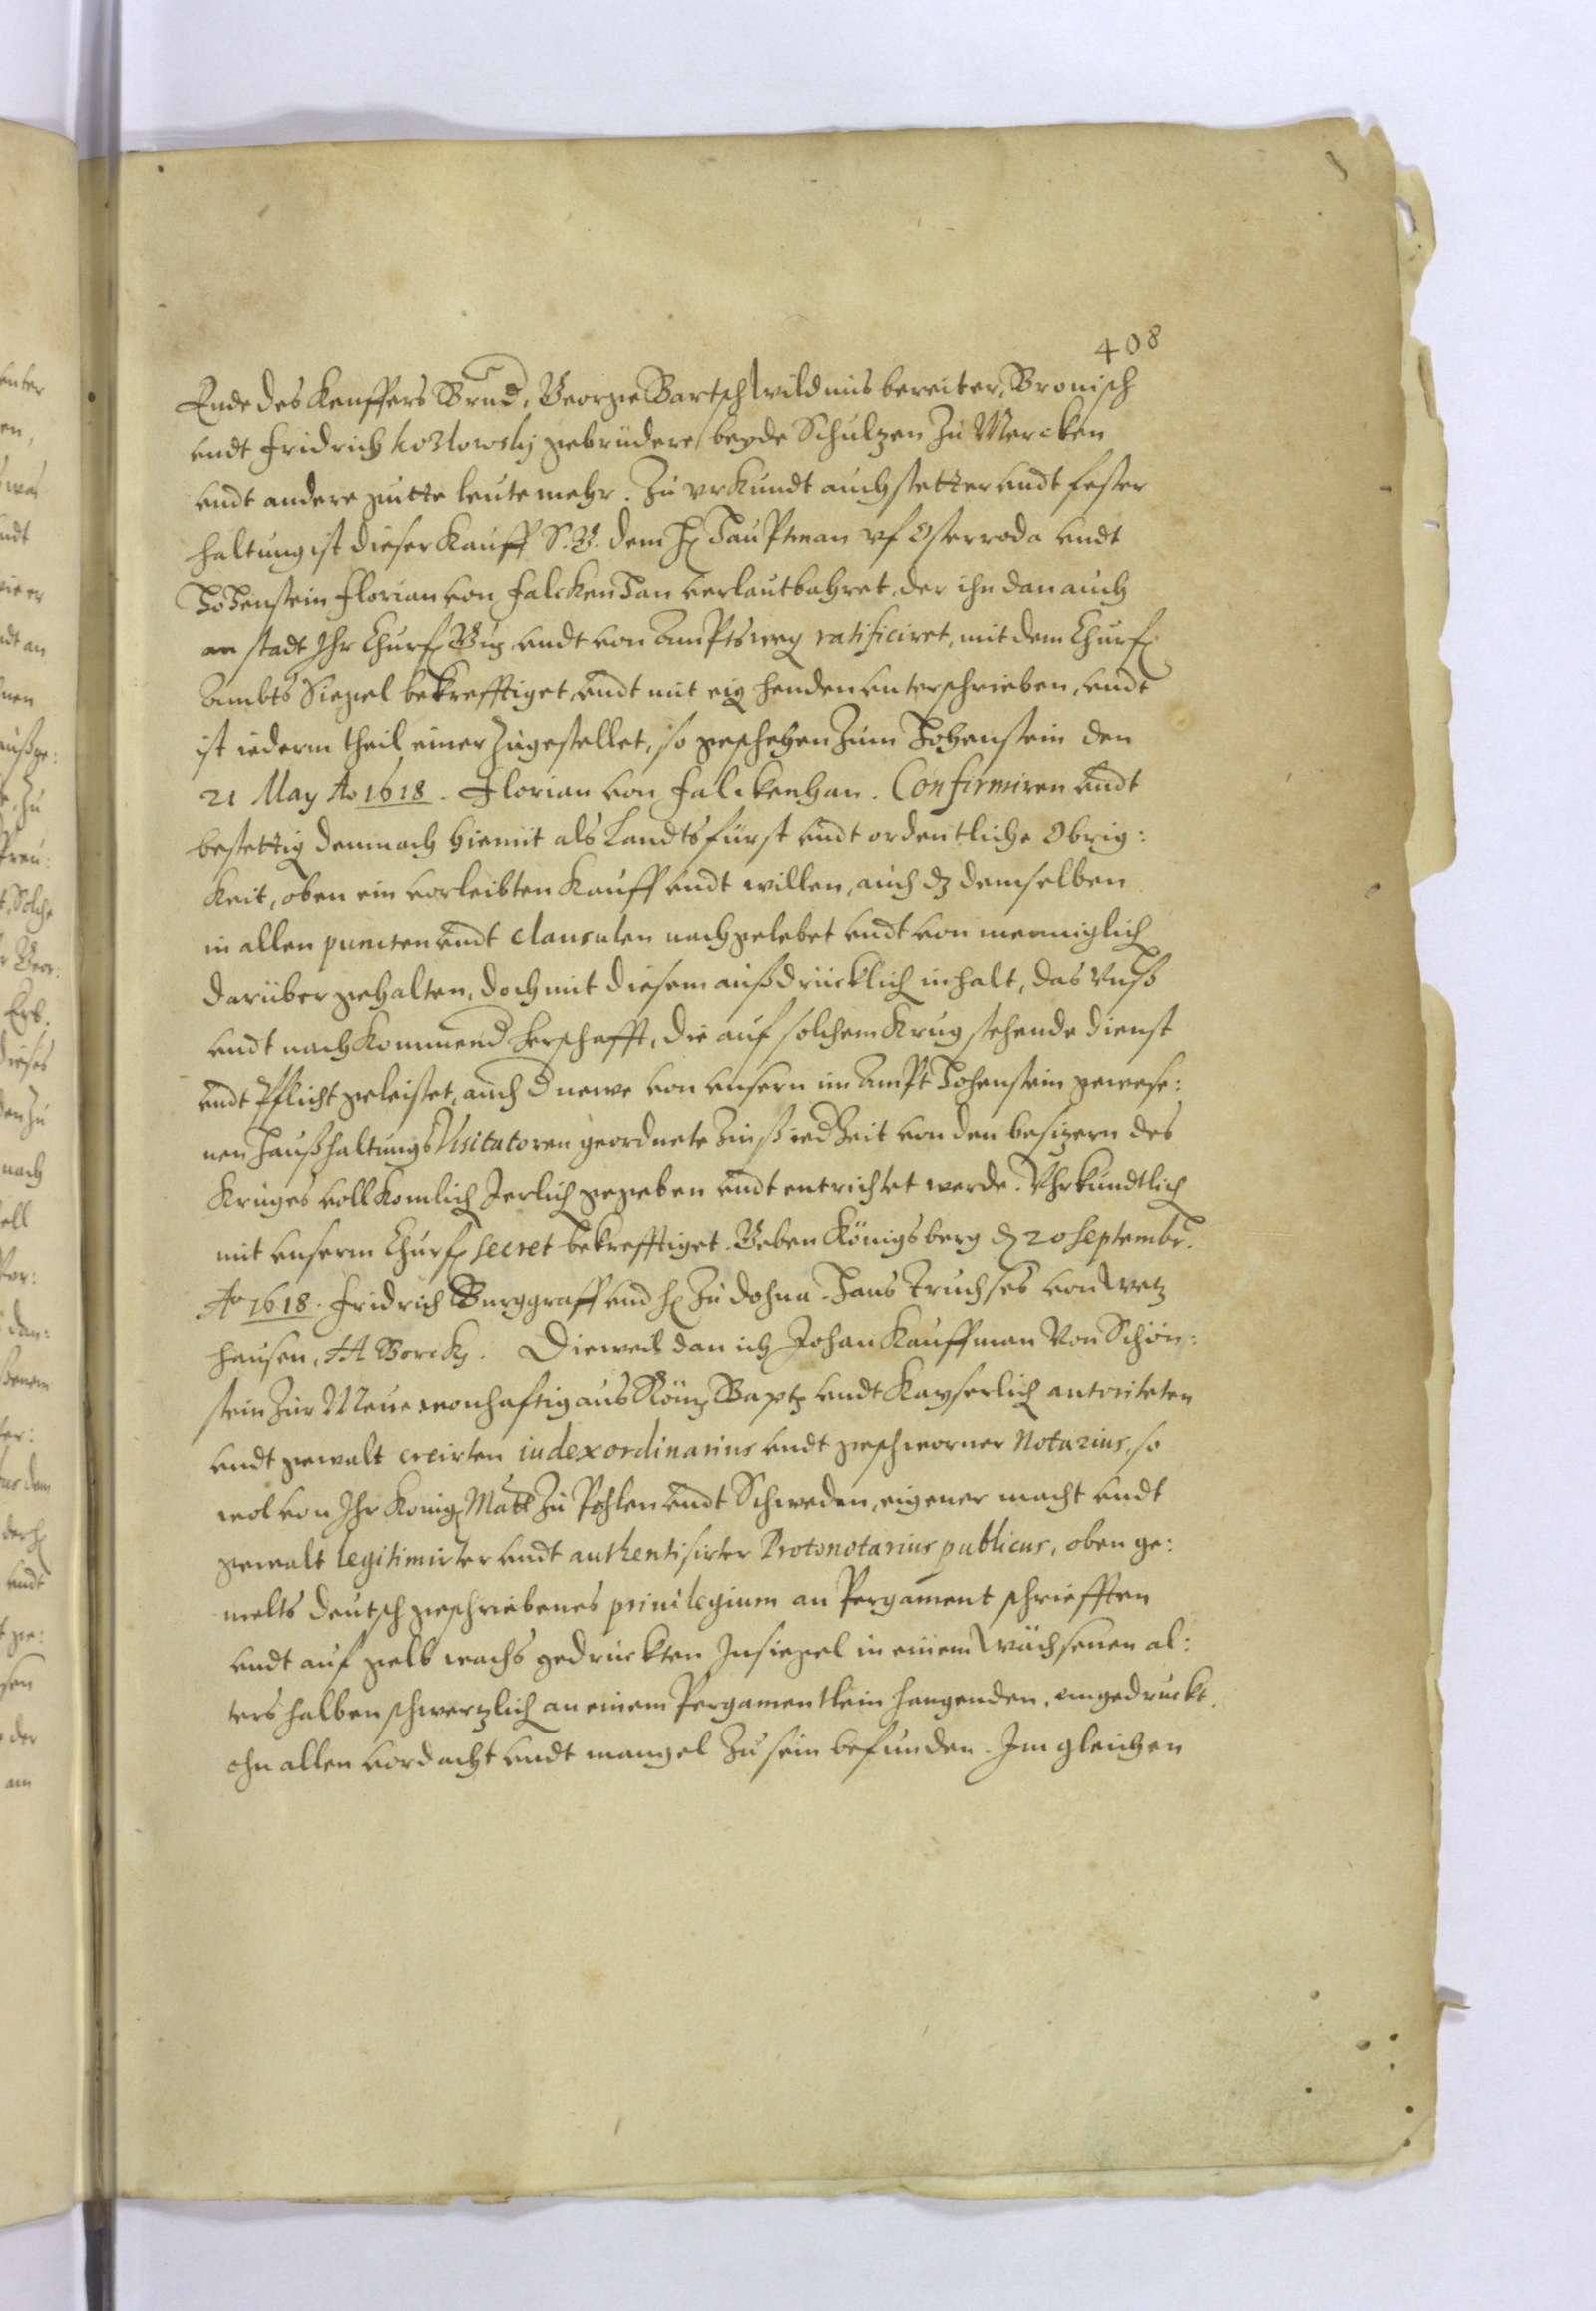 408
Ende des Keuffers Brud, George Bartsch Wildnis bereiter, Bronisch
undt Fridrich Kozlowsky gebrüdere, beyde Schulzen Zu Mercken
undt andere gutte leute mehr. Zu urkundt auch stetter undt fester
haltung ist dieser Kauff S. G. dem H Hauptman uf Osterroda undt
Hohenstein Florian von Falcken Han verlautbahret, der ihn dan auch
an stadt Ihr Churf Gn undt von Ampts weg ratificiret, mit dem Churf
Ambts Siegel bekrefftiget undt mit eig henden unterschrieben, undt
ist iederm theil einer Zugestellet, so geschehen Zum Hohenstein den
21 May Ao 1618. Florian von Falckenhan. Confirmiren undt
bestettig demnach hiemit als Landtsfürst undt ordentliche Obrig:
Keit, oben ein verleibten Kauff undt willen, auch dz demselben
in allen puncten undt clausulen nachgelebet undt von menniglich
darüber gehalten, doch mit diesem außdrücklich inhalt, das Unß
undt nach Kommend herschafft, die auf solchem Krug stehende dienst
undt Pflicht geleistet, auch d newe von unsern im Ampt Hohenstein gewese:
nen Haußhaltungs Visitatoren geordnete Zinß ied Zeit von den besizern des
Kruges voll Komlich Jerlich gegeben undt entrichtet werde. Uhrkundtlich
mit unserm Churf secret bekrefftiget. Geben Königsberg d 20 Septembr.
Ao 1618. Fridrich Burggraff und H Zu Dohna. Hans Truchses von Wetz
hausen, A Borck. Dieweil dan ich Johan Kauffman Von Schön:
stein Zur Mewe wonhafftig aus Röm Bapst undt Kayserlich autoriteten
undt gewalt creirten iudex ordinarius undt geschworner Notarius, so
wol von Ihr Konig Matt Zu Pohlen undt Schweden, eigener macht undt
gewalt legitimirter undt authentisirter Protonotarius publicus, oben ge:
melts deutsch geschriebenes privilegium an Pergament schriefften
undt auf gelb wachs gedruckten Insiegel in einem Wächsenen al:
ters halben schwerzlich an einem Pergamentlein hangenden, eingedruckt
ohn allen verdacht undt mangel Zu sein befunden. Im gleichen